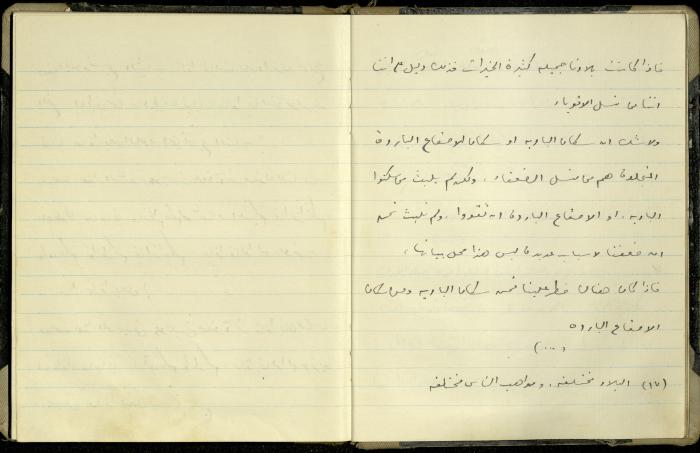 فاذا كانت بلادنا جميله كثيرة الخيرات فذلك دليل على اننا
اننا من نسل الاقوياء
ولا شك ان سكان الباديه او سكان الاصقاع الباردة
القاحلة هم من نسل الضعفاء . ولكن لم يلبث من سكنوا
الباديه . او الاصقاع الباردة ان تقووا . ولم نلبث نحن
ان ضعفنا لاسباب عديدة ليس هذا محل بيانها .
فاذا كان هناك خطر علينا فمن سكان الباديه ومن سكان
الاصقاع الباردة
(....)
(١٧) البلاد مختلفه . ومواهب الناس مختلفه